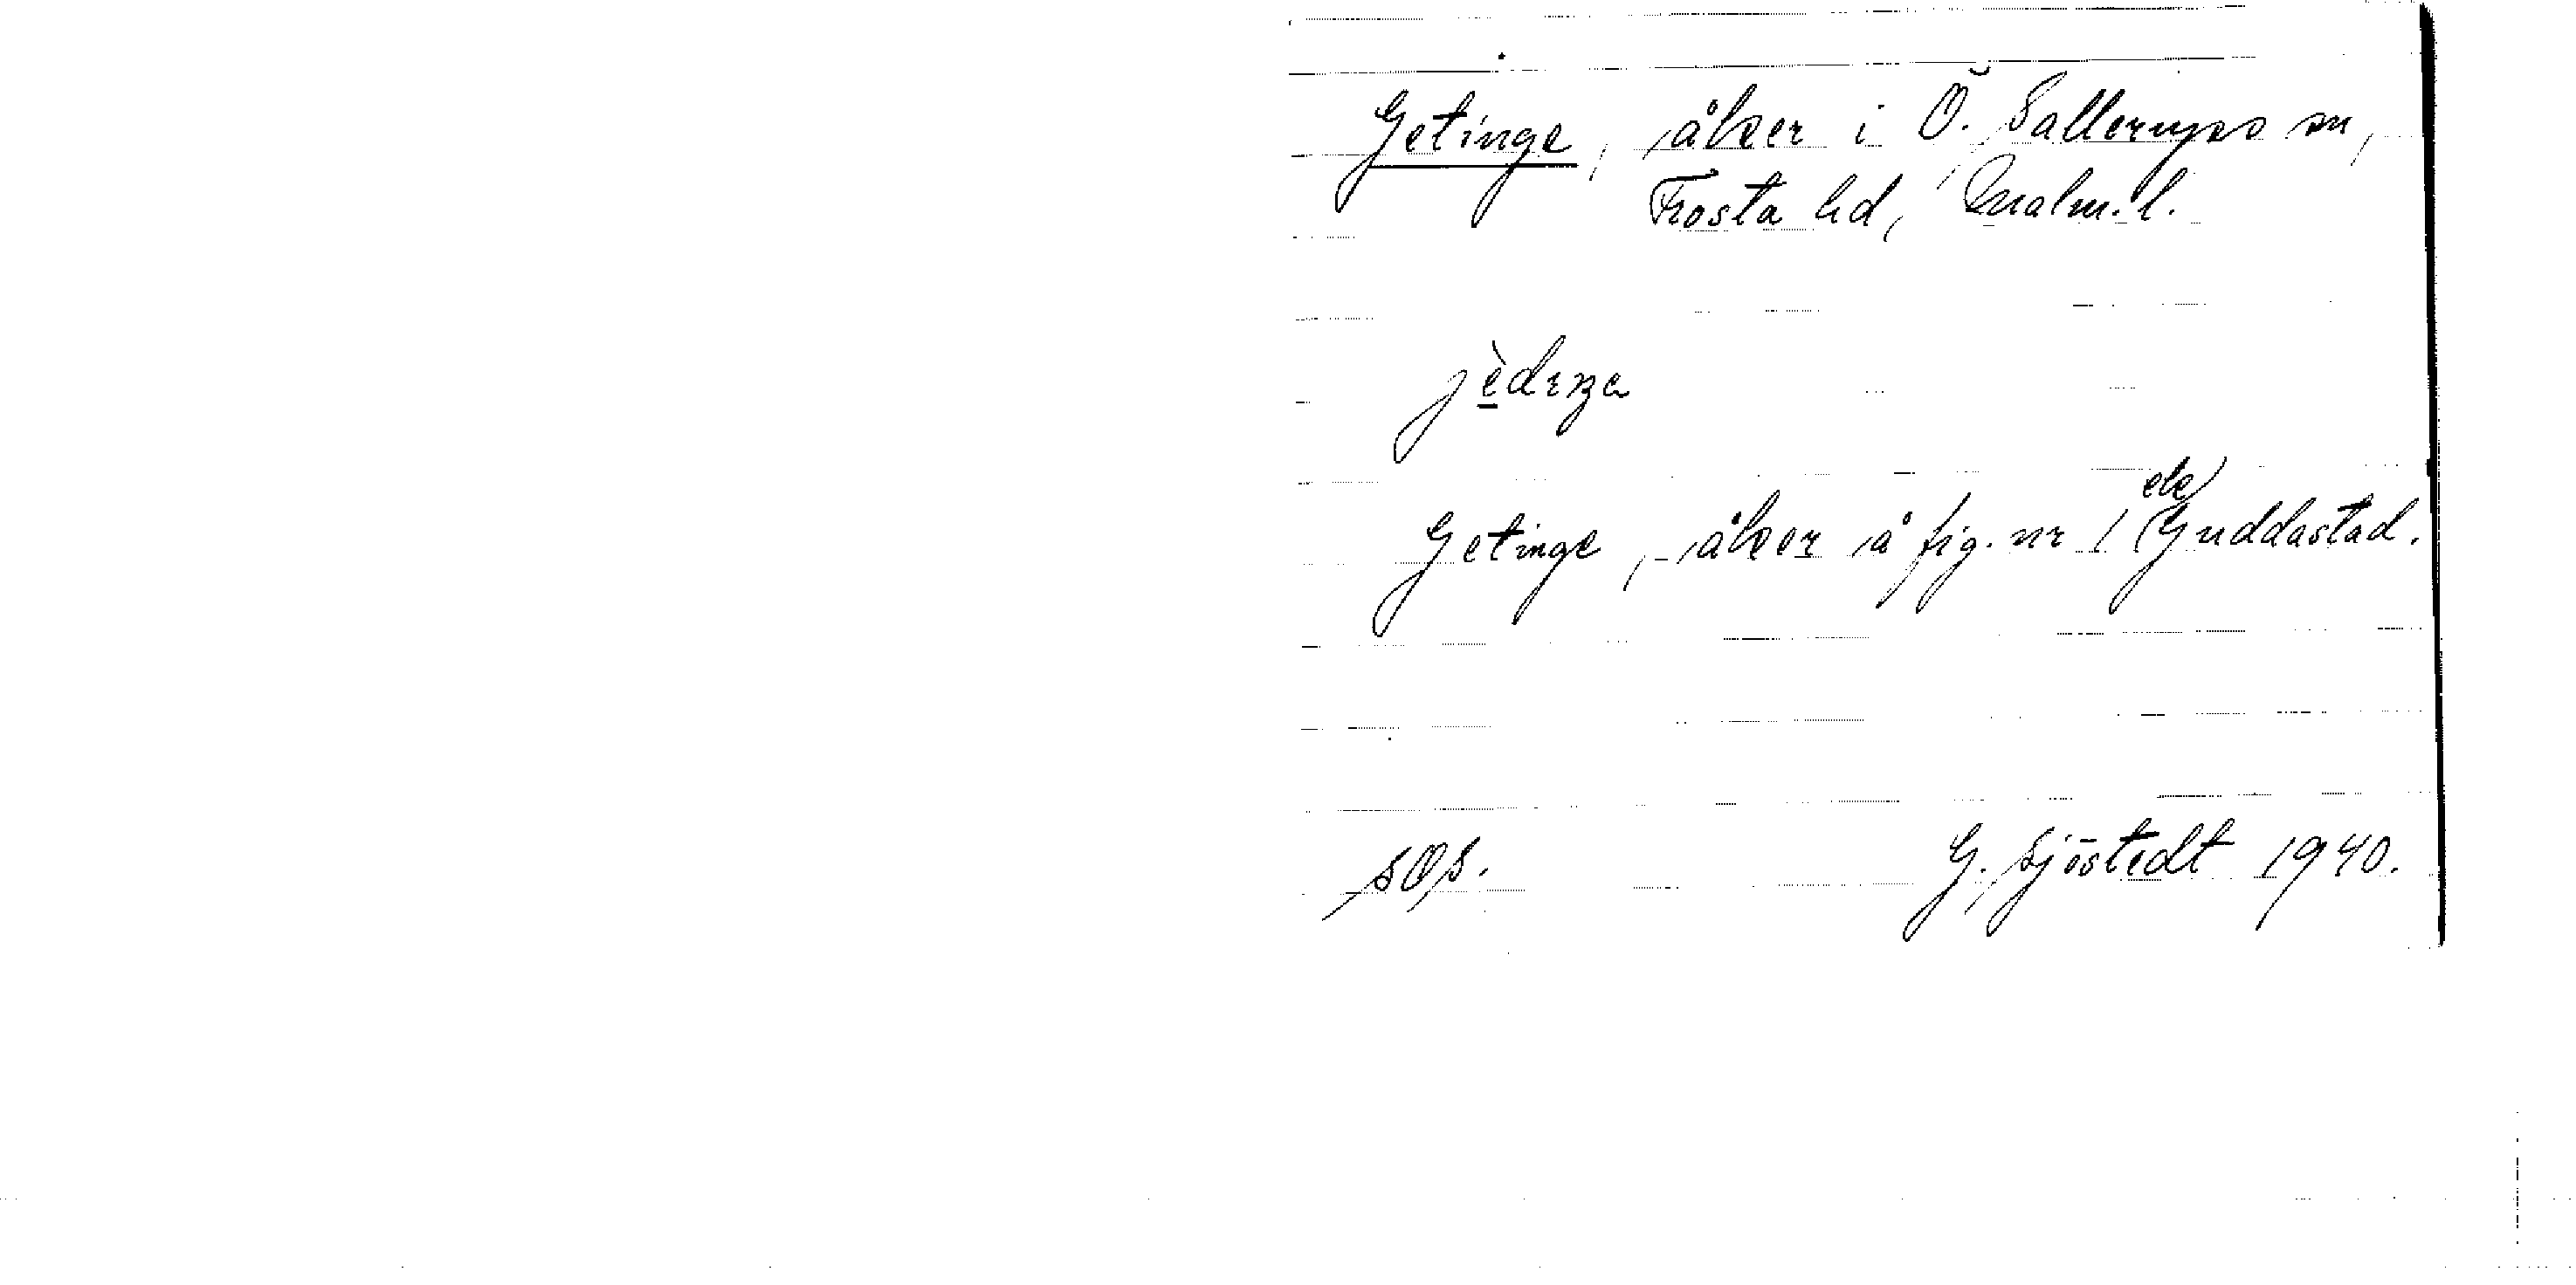 Getinge, åker i Ö. Sallerups sn,
Frosta hd, Malm. l.
Getinge, åker å fig. nr 1 Guddastad.
SOS. G. Sjöstedt 1940.